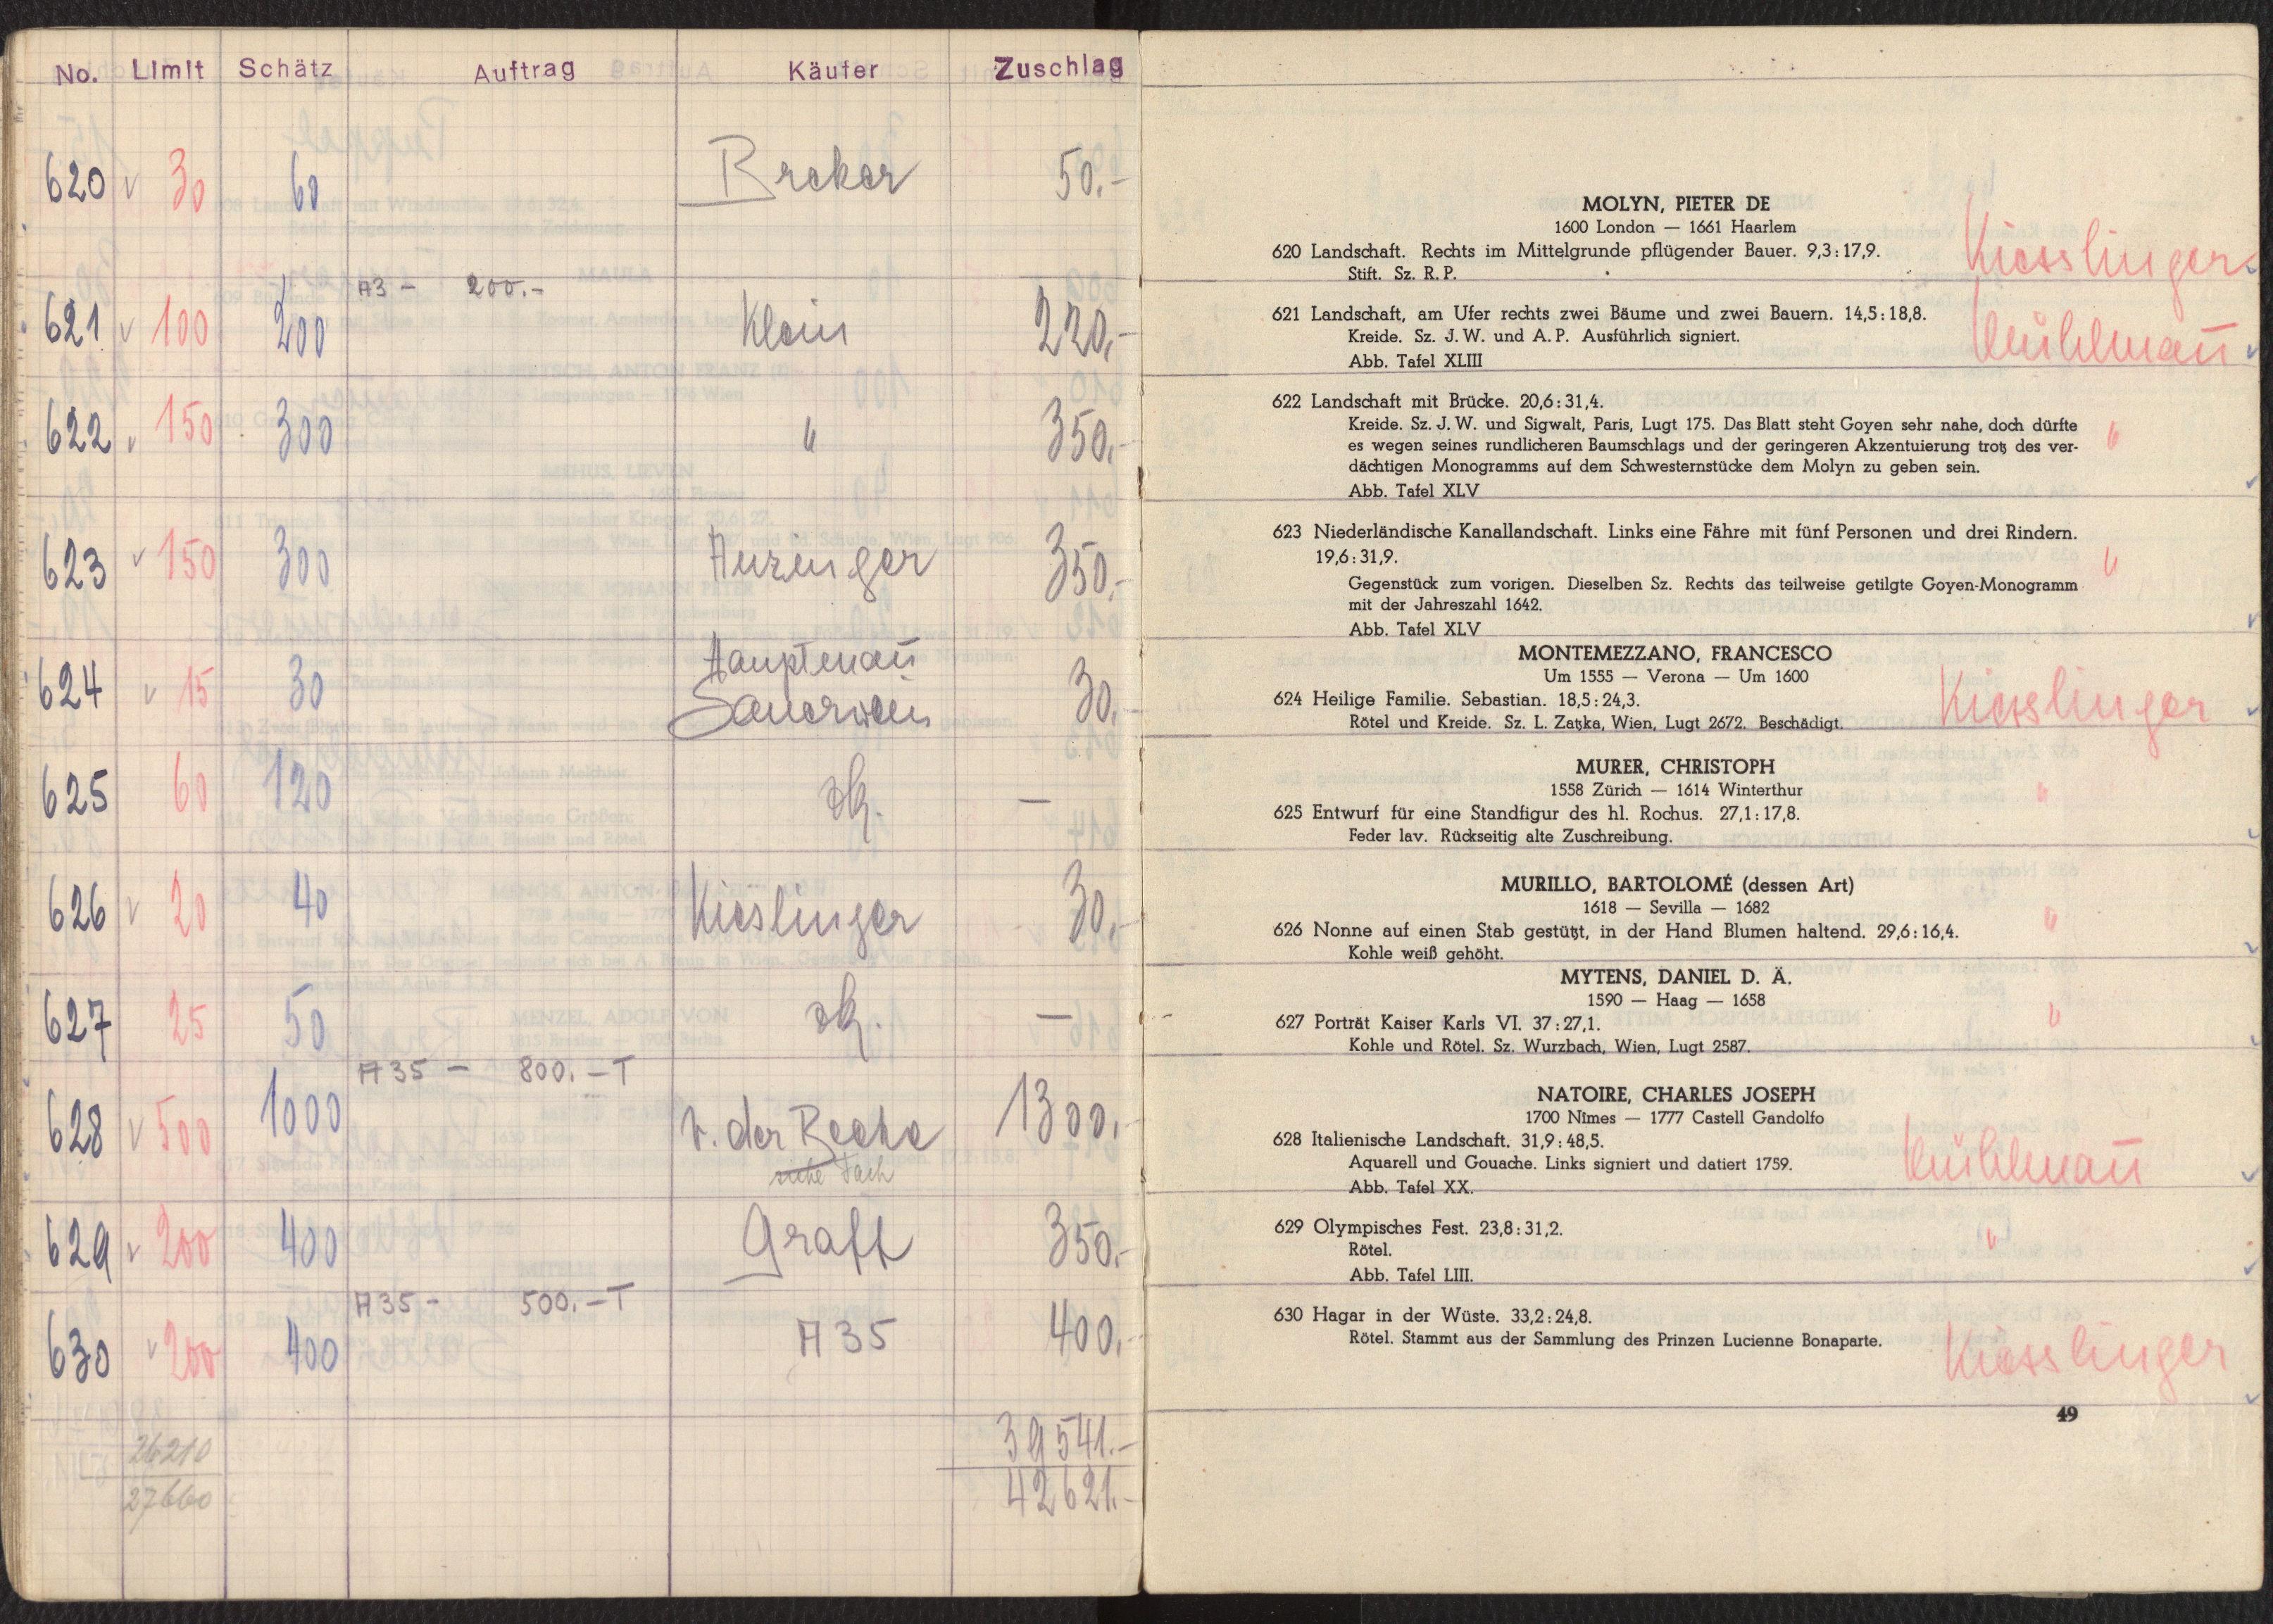 No. Limit Schätz Auftrag Käufer Zuschlag
620 v 30 60 Breker 50.-
A3 - 200.-
621 v 100 200 Klein 220.-
622 v 150 300 " 350.-
623 v 150 300 Aurenger 350.-
Hauptmañ
624 v 15 30 Sauerwein 30.-
625 60 120 zk. —
626 v 20 40 Kieslinger 30.-
627 25 50 zk. —
A35 - 800.- T
628 v 500 1000 v. der Recke 1300.-
siehe Fach
629 v 200 400 Graff 350.-
A35 - 500.- T
630 v 200 400 A35 400.-
39541.-
42621.-
26210
27660
MOLYN, PIETER DE
1600 London — 1661 Haarlem
620 Landschaft. Rechts im Mittelgrunde pflügender Bauer. 9,3:17,9. Kiesslinger
Stift. Sz. R. P.
621 Landschaft, am Ufer rechts zwei Bäume und zwei Bauern. 14,5:18,8.
Kreide. Sz. J. W. und A. P. Ausführlich signiert. Kuhlmañ
Abb. Tafel XLIII
622 Landschaft mit Brücke. 20,6:31,4.
Kreide. Sz. J. W. und Sigwalt, Paris, Lugt 175. Das Blatt steht Goyen sehr nahe, doch dürfte "
es wegen seines rundlicheren Baumschlags und der geringeren Akzentuierung trotz des ver-
dächtigen Monogramms auf dem Schwesternstücke dem Molyn zu geben sein.
Abb. Tafel XLV
623 Niederländische Kanallandschaft. Links eine Fähre mit fünf Personen und drei Rindern.
19,6:31,9. "
Gegenstück zum vorigen. Dieselben Sz. Rechts das teilweise getilgte Goyen-Monogramm
mit der Jahreszahl 1642.
Abb. Tafel XLV
MONTEMEZZANO, FRANCESCO
Um 1555 — Verona — Um 1600
624 Heilige Familie. Sebastian. 18,5:24,3. Kiesslinger
Rötel und Kreide. Sz. L. Zatzka, Wien, Lugt 2672. Beschädigt.
MURER, CHRISTOPH
1558 Zürich — 1614 Winterthur "
625 Entwurf für eine Standfigur des hl. Rochus. 27,1:17,8.
Feder lav. Rückseitig alte Zuschreibung.
MURILLO, BARTOLOMÉ (dessen Art)
1618 — Sevilla — 1682 "
626 Nonne auf einen Stab gestützt, in der Hand Blumen haltend. 29,6:16,4.
Kohle weiß gehöht.
MYTENS, DANIEL D. Ä.
1590 — Haag — 1658
627 Porträt Kaiser Karls VI. 37:27,1. "
Kohle und Rötel. Sz. Wurzbach, Wien, Lugt 2587.
NATOIRE, CHARLES JOSEPH
1700 Nîmes — 1777 Castell Gandolfo
628 Italienische Landschaft. 31,9:48,5.
Aquarell und Gouache. Links signiert und datiert 1759. Kuhlmañ
Abb. Tafel XX.
629 Olympisches Fest. 23,8:31,2.
Rötel. "
Abb. Tafel LIII.
630 Hagar in der Wüste. 33,2:24,8.
Rötel. Stammt aus der Sammlung des Prinzen Lucienne Bonaparte. Kiesslinger
49